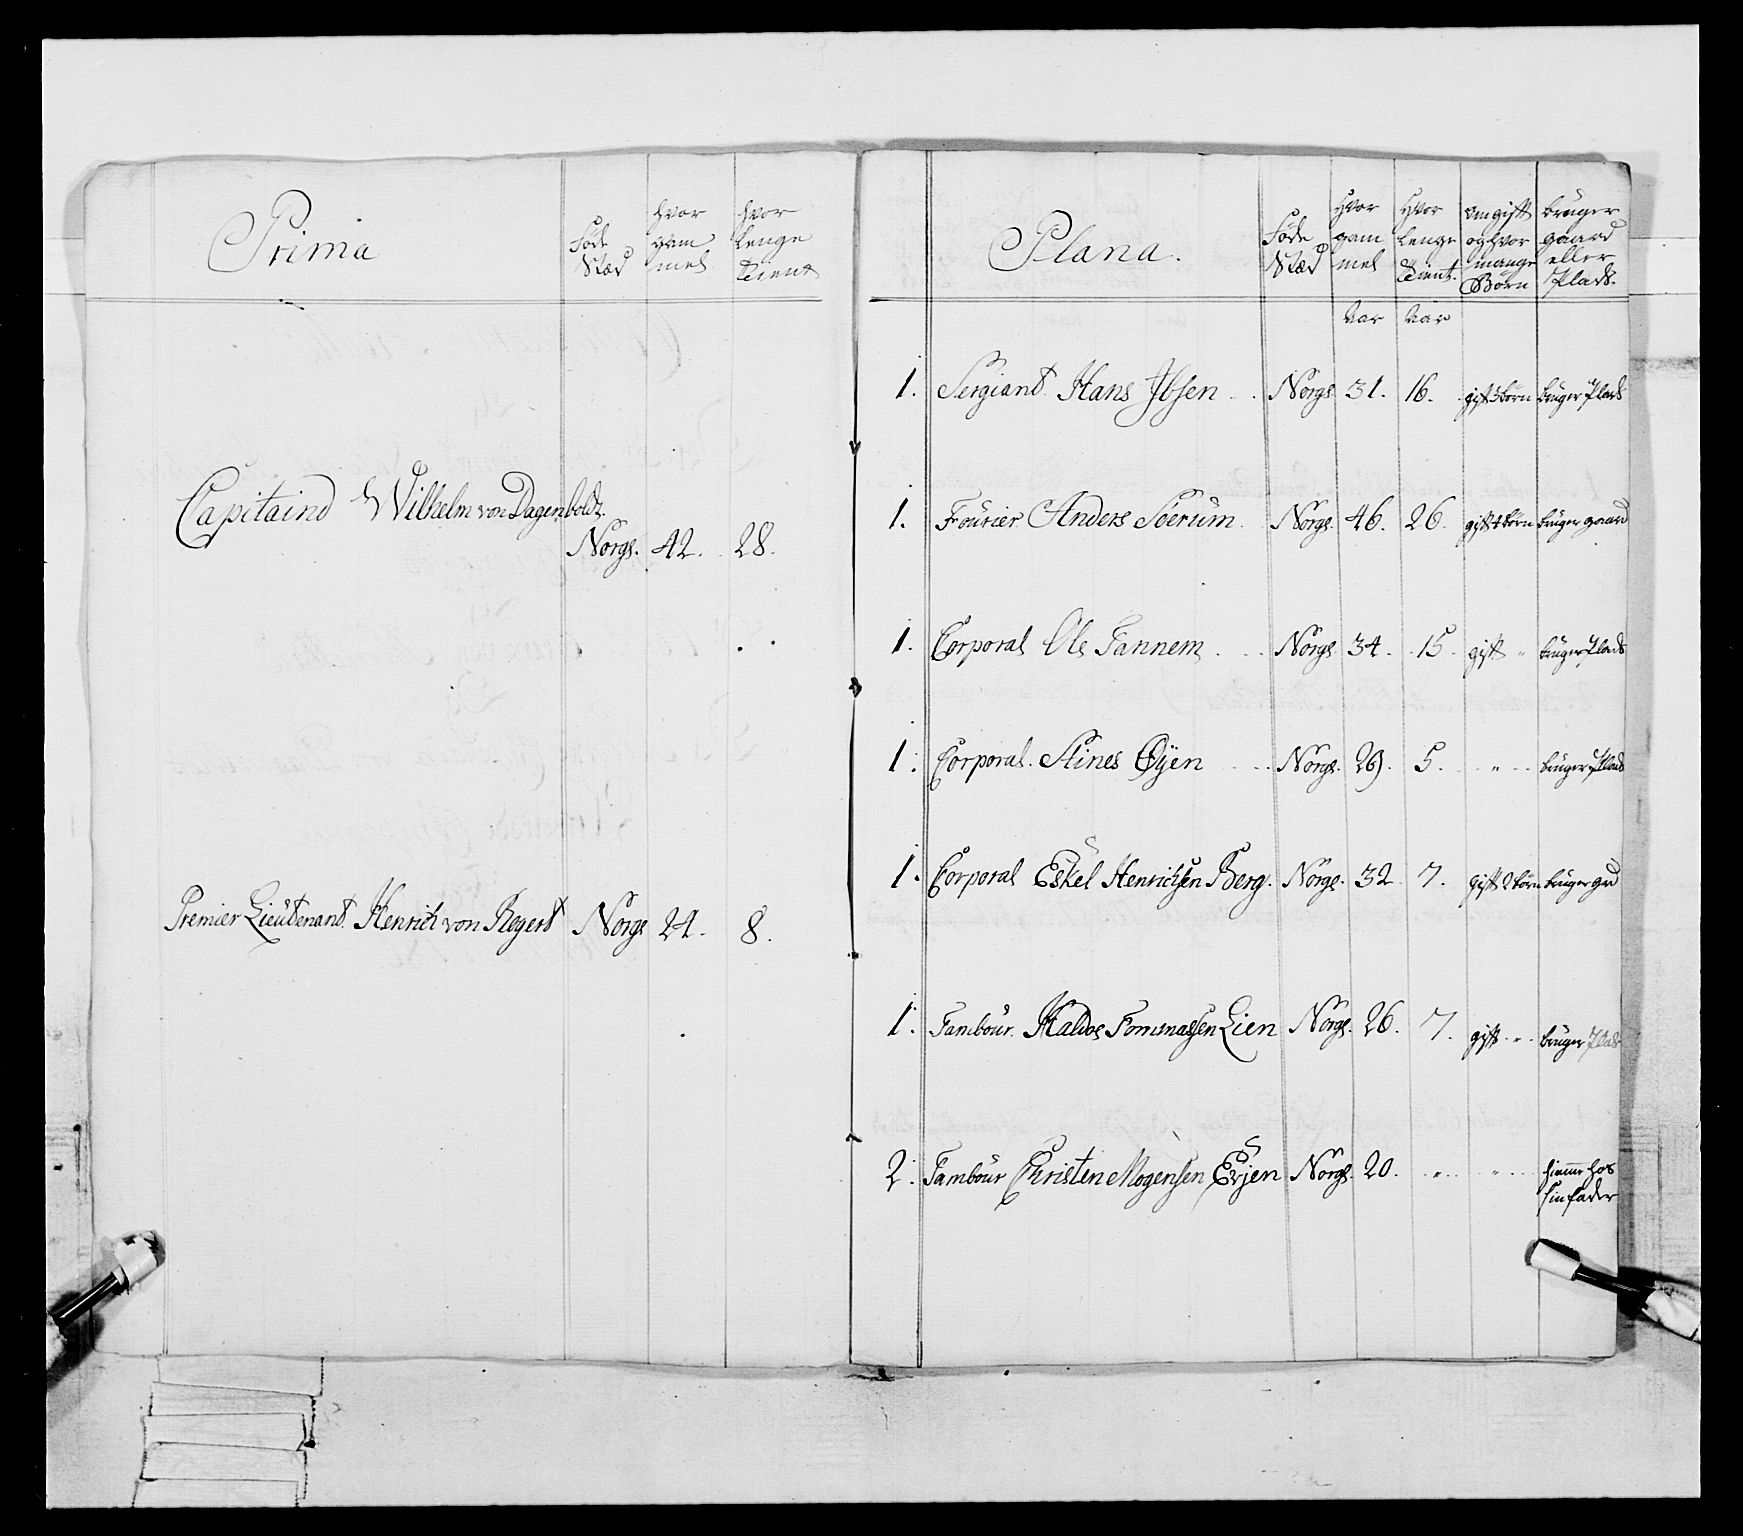 Prima
Føde Stæd
hvor gam mel
hvor lenge tient
Capitaind Wilhelm von Dagenboldt.
Norge. 42. 28.
Premier Lieutenant. Henrich von Regert Norge 24. 8.
Plana.
Føde Stæd
Hvor gam mel
Hvor lenge tient.
om gift og hvor mange Børn
bruger gaard eller Plads.
aar aar
1. Sergiant Hans Ibsen Norge 31. 16. gift 3 børn bruger Plads
1. Fourier Anders Soerum. Norge. 46. 26. gift 4 børn bruger gaard
1. Corporal Ole Fannem Norge 34. 15. gift " bruger Plads
1. Corporal. Stines Øyen Norge. 29. 5. " bruger Plads
1. Corporal Eskel Henrichsen Berg. Norge. 32. 7. gift 2 børn bruger grd
1. Tambour. Haldos Tommassen Lien Norge. 26. 7. gift " bruger Plads
2. Tambour Christen Mogensen Erjen Norge. 20. " " hiemme hos
sin fader